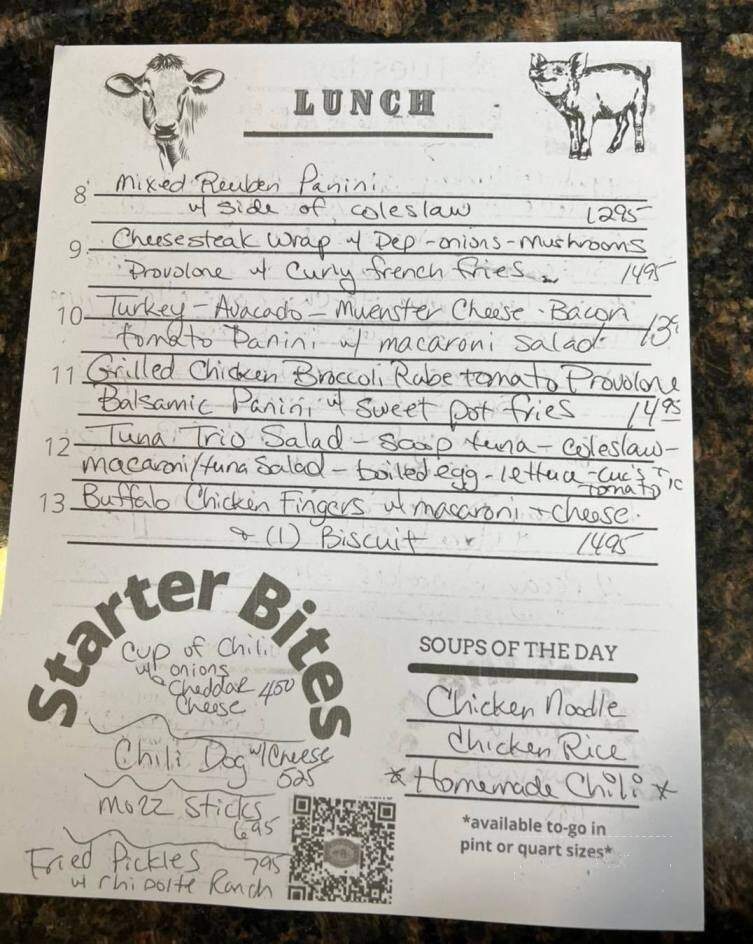 LUNCH
8. Mixed Reuben Panini
w/ side of coleslaw 1295
9. Cheesesteak Wrap w/ Pep - onions - mushrooms
Provolone w/ Curly french fries 1495
10. Turkey - Avacado - Muenster Cheese - Bacon
tomato Panini w/ macaroni salad
11. Grilled Chicken Broccoli Rabe tomato Provolone
Balsamic Panini w/ Sweet pot fries 1495
12. Tuna Trio Salad - scoop tuna - coleslaw -
macaroni/tuna Salad - boiled egg - lettuce - cuc's +
tomato
13. Buffalo Chicken Fingers w/ macaroni + cheese
& (1) Biscuit 1495
Starter Bites
Cup of Chili
w/ onions
& Cheddar 450
Cheese
Chili Dog w/ Cheese
525
Mozz Sticks
695
Fried Pickles 795
w/ Chipolte Ranch
SOUPS OF THE DAY
Chicken Noodle
Chicken Rice
* Homemade Chili *
*available to-go in
pint or quart sizes*